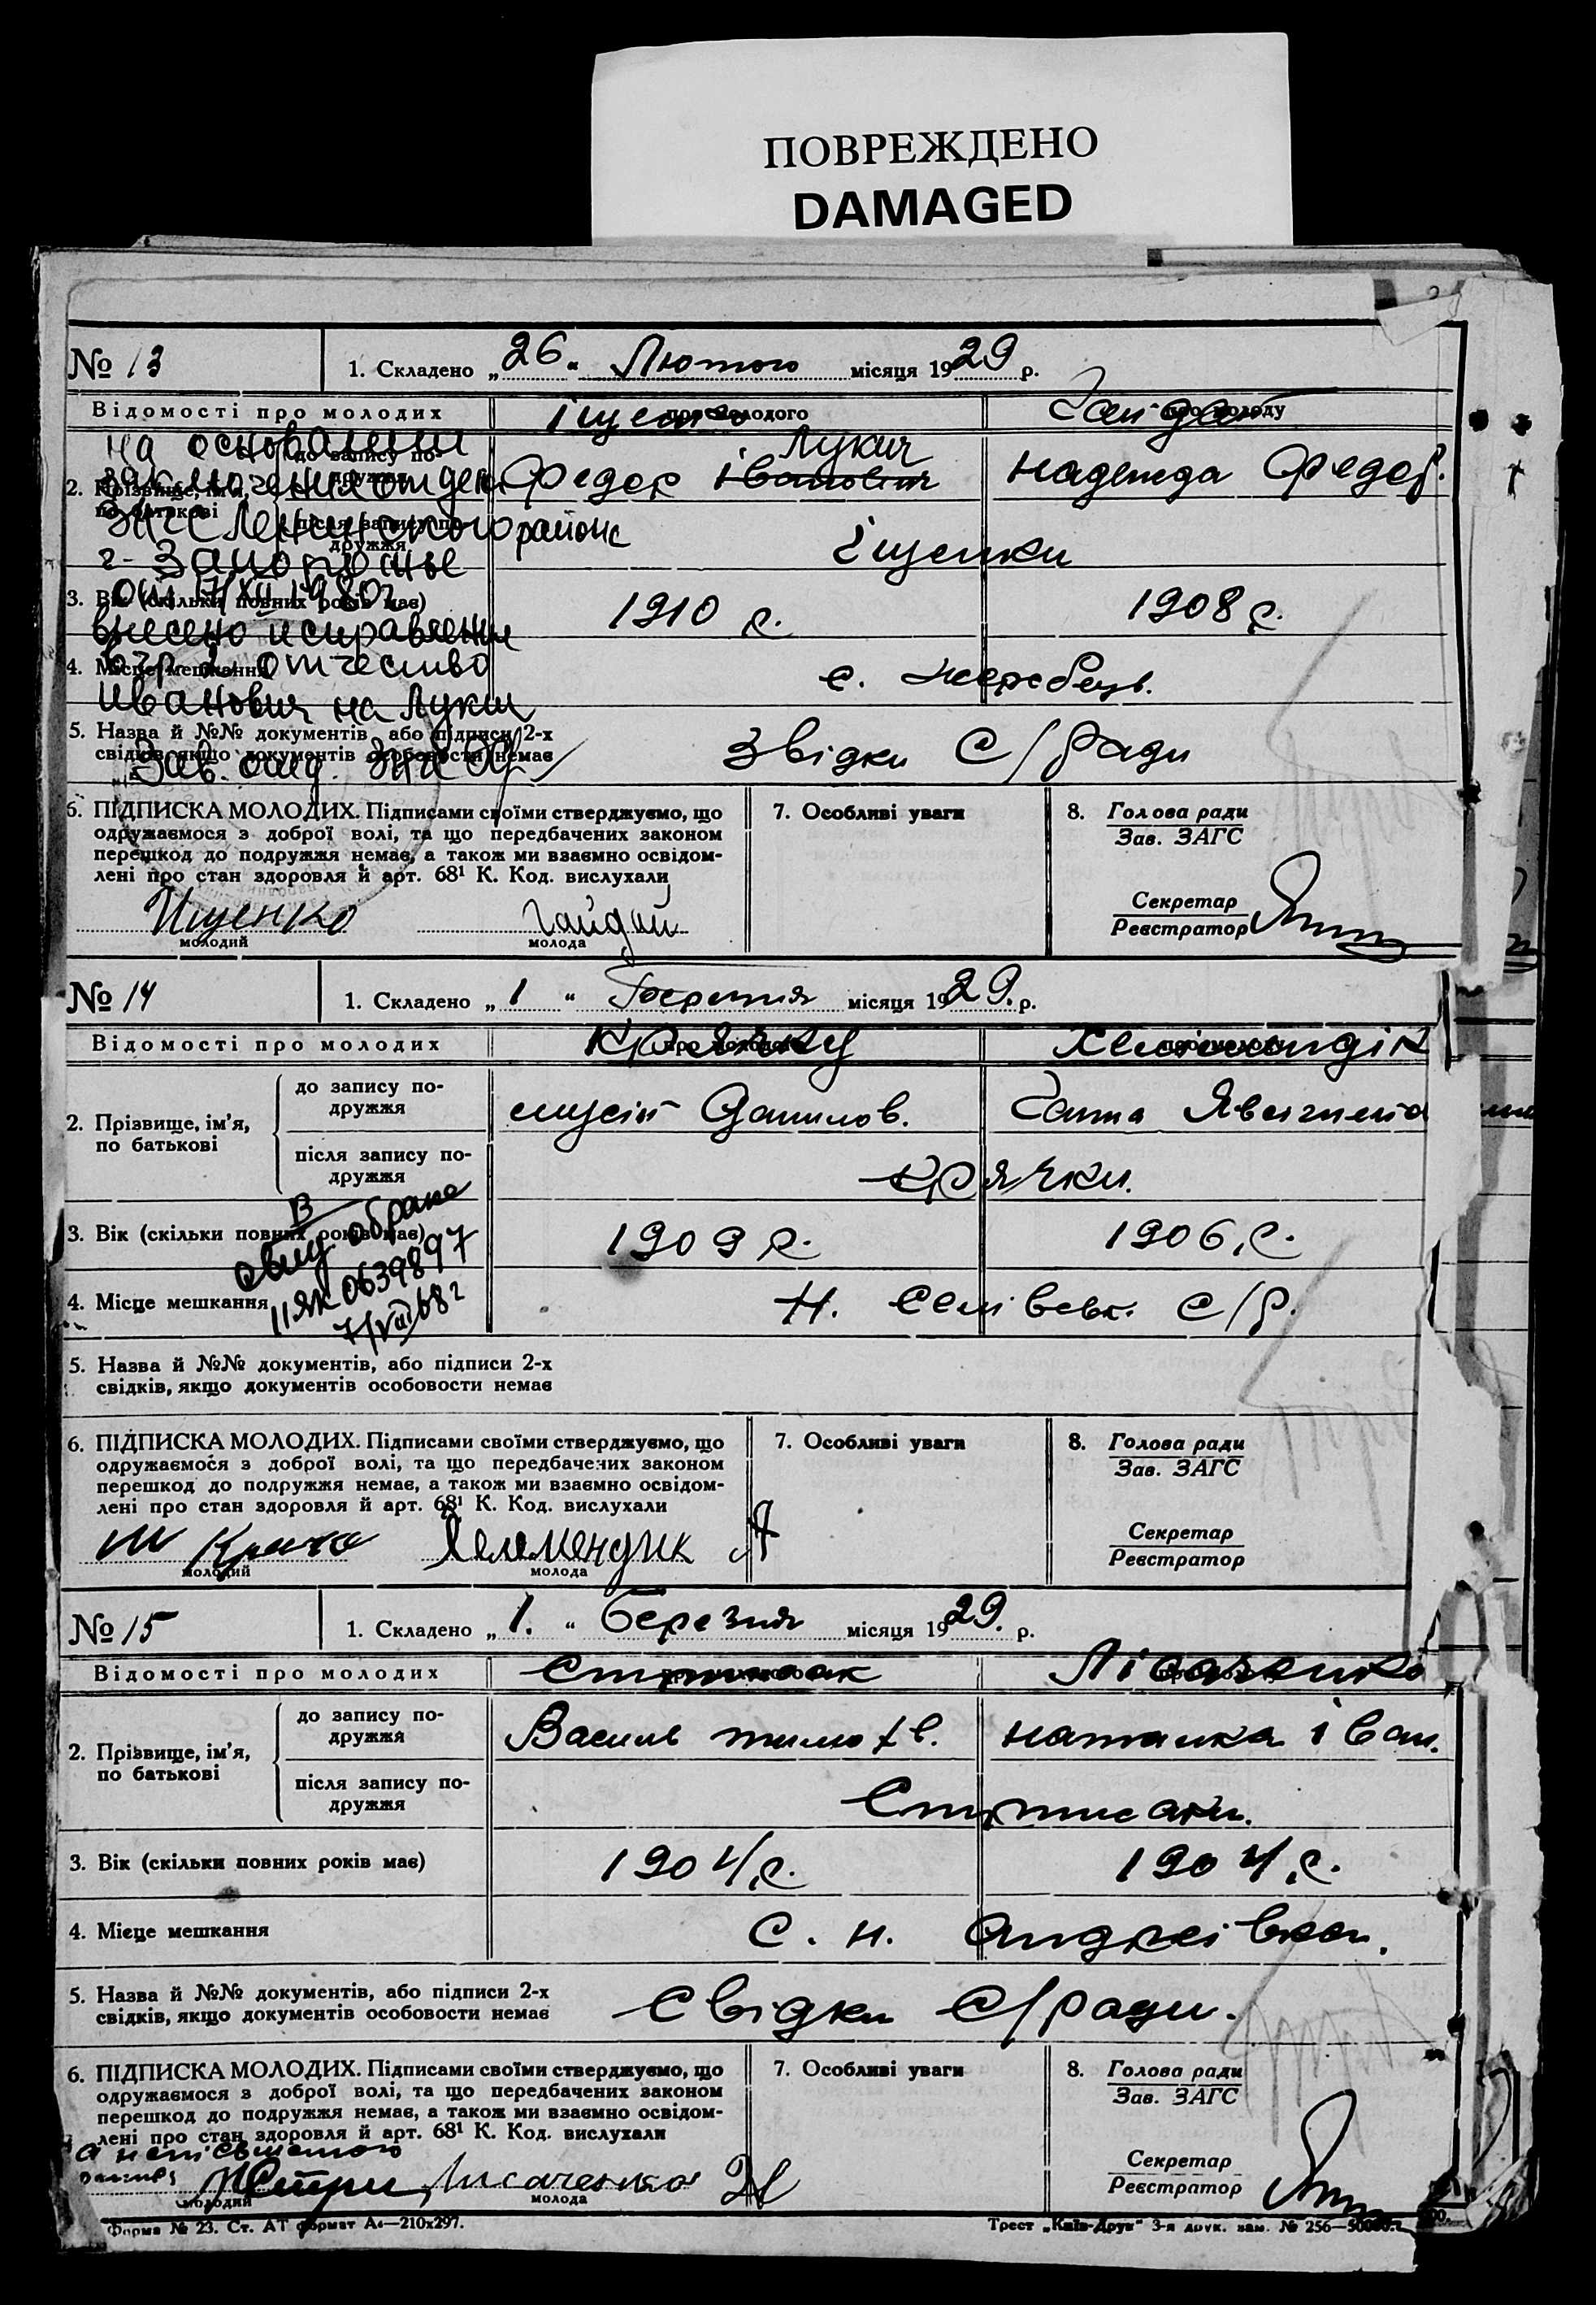 ПОВРЕЖДЕНО
DAMAGED
№ 13
1. Складено „ 26 “ Лютого місяця 1929 р.
Відомості про молодих
про молодого
про молоду
Іщенко
Гайдай
2. Прізвище, ім'я, по батькові
до запису по-
дружжя
Лукич
Федор Іванович
Надежда Федор.
після запису по-
дружжя
Іщенки
3. Вік (скільки повних років має)
1910 р.
1908 р.
4. Місце мешкання
с. Жеребець.
5. Назва й №№ документів, або підписи 2-х
свідків, якщо документів особовости немає
Звідки С/Ради
на основании
заключения отдел.
ЗАГС Ленинского района
г. Запорожье
от 17/XII 1980г
внесено исправление
в гр. 2 отчество
Иванович на Лукич
Зав. отд. ЗАГС
6. ПІДПИСКА МОЛОДИХ. Підписами своїми стверджуємо, що
одружаємося з доброї волі, та що передбачених законом
перешкод до подружжя немає, а також ми взаємно освідом-
лені про стан здоровля й арт. 68¹ К. Код. вислухали
Ищенко
Гайдай
молодий
молода
7. Особливі уваги
8. Голова ради
Зав. ЗАГС
Секретар
Реєстратор
№ 14
1. Складено „ 1 “ Березня місяця 1929. р.
Відомості про молодих
Хелемендік
2. Прізвище, ім'я,
по батькові
до запису по-
дружжя
Мусій Данилов.
Ганна
після запису по-
дружжя
Крячки.
3. Вік (скільки повних років має)
1909 р.
1906 р.
4. Місце мешкання
Н. С/р.
В
свид. о браке
II ЯК 0639897
7/VII 68г
5. Назва й №№ документів, або підписи 2-х
свідків, якщо документів особовости немає
6. ПІДПИСКА МОЛОДИХ. Підписами своїми стверджуємо, що
одружаємося з доброї волі, та що передбачених законом
перешкод до подружжя немає, а також ми взаємно освідом-
лені про стан здоровля й арт. 68¹ К. Код. вислухали
Хелемендик А
молодий
молода
7. Особливі уваги
8. Голова ради
Зав. ЗАГС
Секретар
Реєстратор
№ 15
1. Складено „ 1. “ Березня місяця 1929. р.
Відомості про молодих
Лісаченко
2. Прізвище, ім'я,
по батькові
до запису по-
дружжя
Василь Тимоф.
Наталка Іван.
після запису по-
дружжя
3. Вік (скільки повних років має)
1904 р.
1904 р.
4. Місце мешкання
С. Н. Андреівка.
5. Назва й №№ документів, або підписи 2-х
свідків, якщо документів особовости немає
Свідки С/ради.
6. ПІДПИСКА МОЛОДИХ. Підписами своїми стверджуємо, що
одружаємося з доброї волі, та що передбачених законом
перешкод до подружжя немає, а також ми взаємно освідом-
лені про стан здоровля й арт. 68¹ К. Код. вислухали
Лисаченко Н
молодий
молода
7. Особливі уваги
8. Голова ради
Зав. ЗАГС
Секретар
Реєстратор
Форма № 23. Ст. АТ формат А4—210x297.
Трест „Київ-Друк“ 3-я друк. зам. № 256—